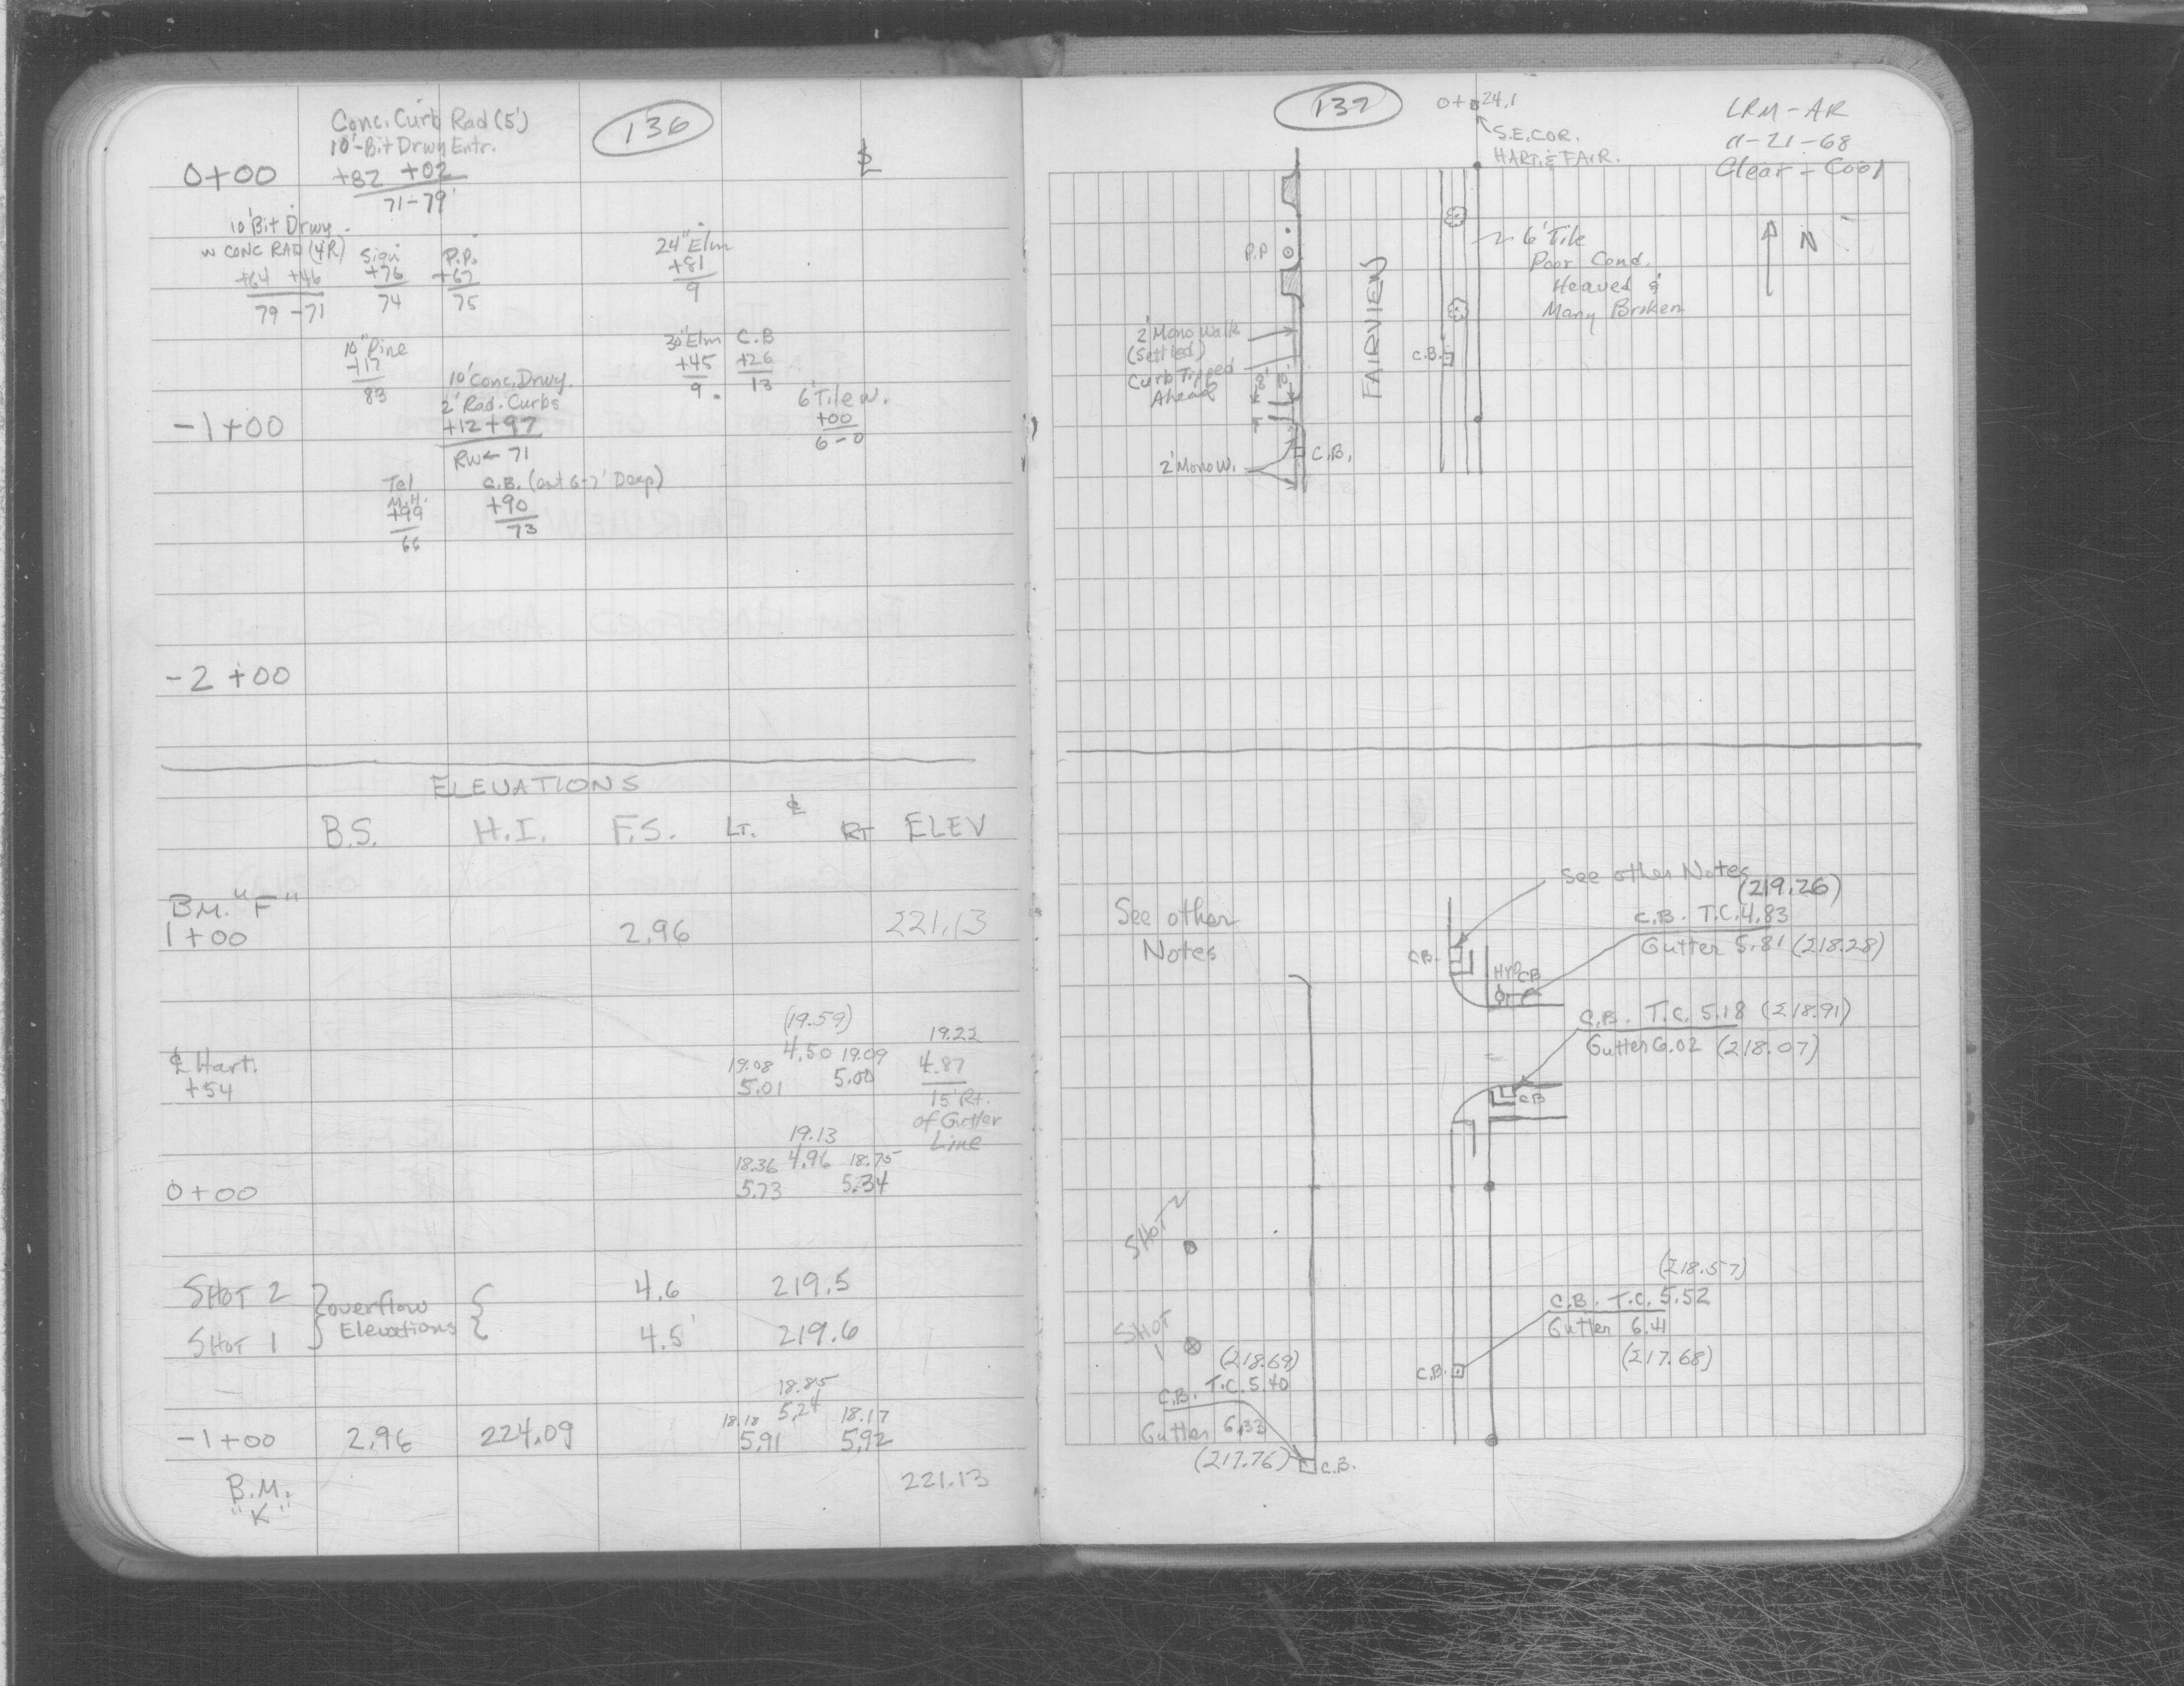 136
Conc. Curb Rad (5')
10'-Bit Drwy Entr.
0+00 +82 +02
71-79
10' Bit Drwy.
w CONC RAD (4'R) Sign P.P. 24" Elm
+64 +46 +76 +67 +81
79-71 74 75 9
10" Pine 30" Elm C.B
+17 +45 +26
83 9 13
10' Conc. Drwy.
2' Rad. Curbs 6' Tile W.
-1+00 +12 +97 +00
RW← 71 6-0
Tel M.H. C.B. (out 6-7' Deep)
+99 +90
66 73
-2+00
ELEVATIONS
B.S. H.I. F.S. LT. ℄ RT ELEV
B.M. "F"
1+00 2.96 221.13
(19.59) 19.22
℄ Hart. 19.08 4.50 19.09 4.87
+54 5.01 5.00 15' Rt.
of Gutter
Line
19.13
18.36 4.96 18.75
0+00 5.73 5.34
SHOT 2 overflow 4.6 219.5
SHOT 1 Elevations 4.5 219.6
18.85
18.18 5.24 18.17
-1+00 2.96 224.09 5.91 5.92
B.M. 221.13
"K"
137
0+24.1
S.E. COR.
HART. & FAIR.
LRM-AR
11-21-68
Clear - Cool
N
P.P
FAIRVIEW
6' Tile
Poor Cond.
Heaved &
Many Broken
2' Mono Walk
(Settled)
Curb Tipped
Ahead
8'
C.B.
C.B.
2' Mono W.
See other
Notes
See other Notes
(219.26)
C.B. T.C. 4.83
Gutter 5.81 (218.28)
C.B.
HYD
CB
C.B. T.C. 5.18 (218.91)
Gutter 6.02 (218.07)
CB
SHOT 2
SHOT 1
(218.57)
C.B. T.C. 5.52
Gutter 6.41
(217.68)
C.B.
(218.69)
C.B. T.C. 5.40
Gutter 6.33
(217.76)
C.B.